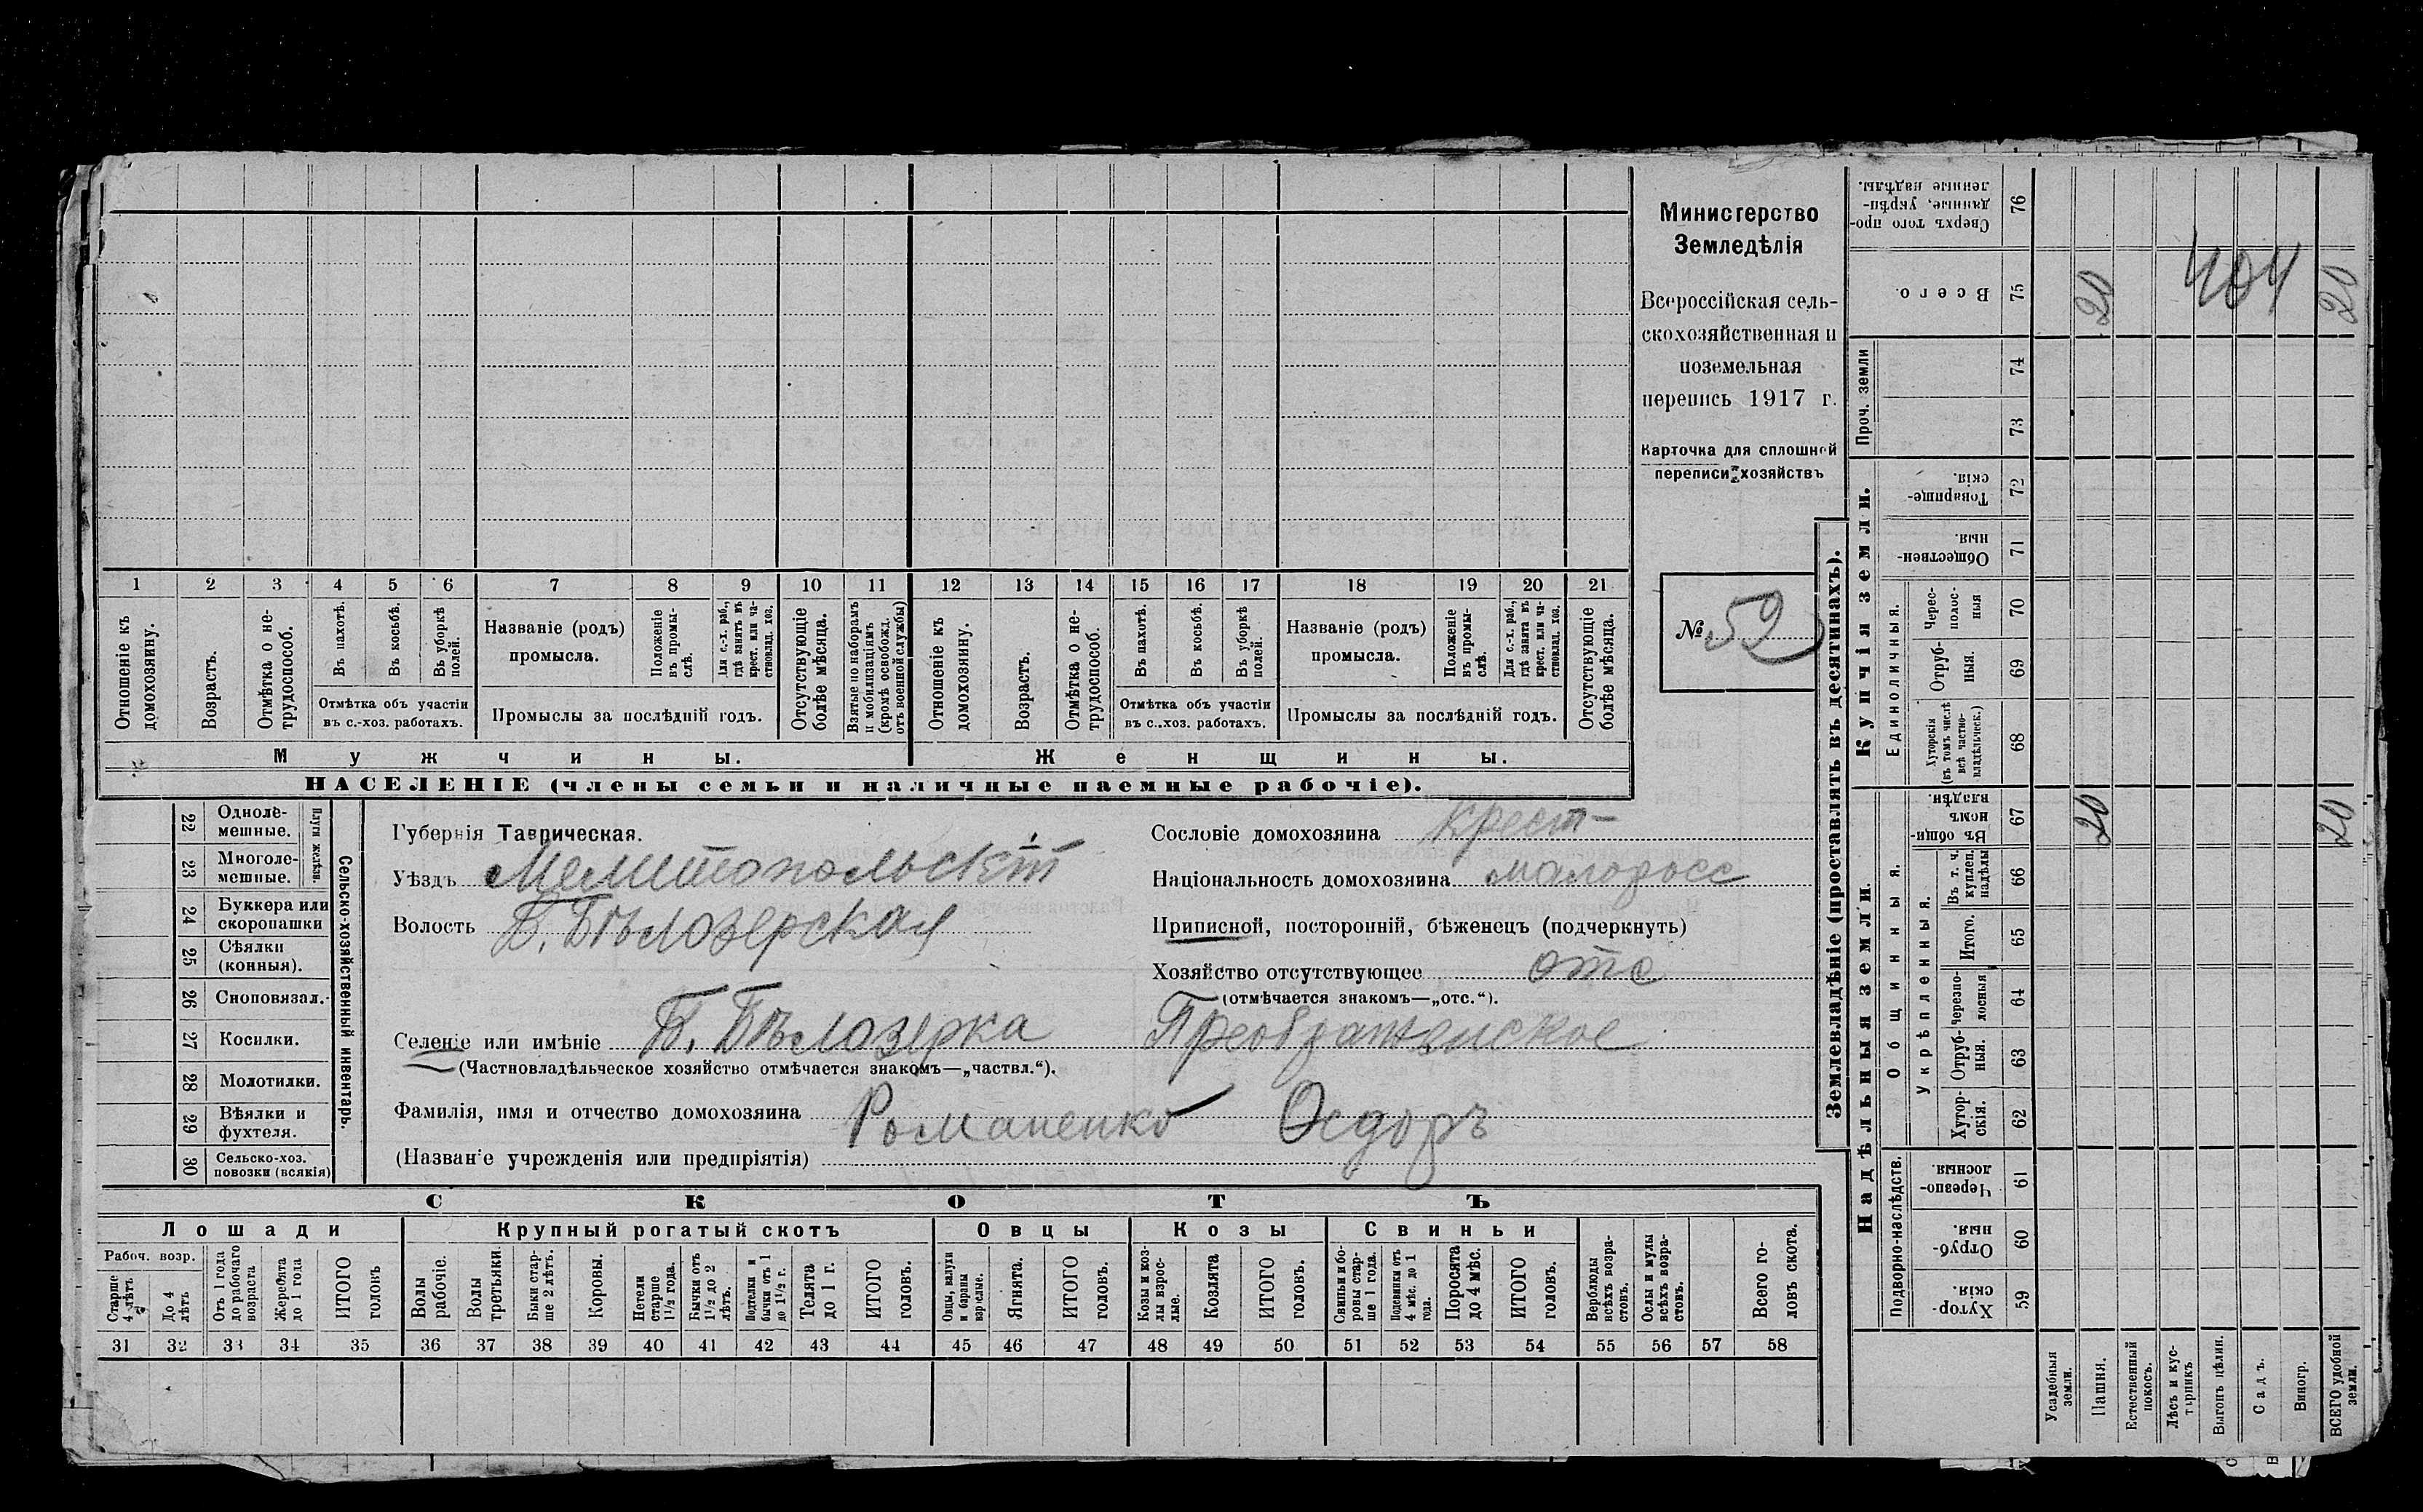 Министерство
Земледѣлія
Всероссійская сель-
скохозяйственная и
поземельная
перепись 1917 г.
Карточка для сплошной
переписи хозяйствъ
№ 59
1 2 3 4 5 6 7 8 9 10 11 12 13 14 15 16 17 18 19 20 21
Отношеніе къ домохозяину.
Возрастъ.
Отмѣтка о не-трудоспособ.
Въ пахотѣ.
Въ косьбѣ.
Въ уборкѣ полей.
Отмѣтка объ участіи
въ с.-хоз. работахъ.
Названіе (родъ)
промысла.
Положеніе въ промы-слѣ.
Для с.-х. раб., гдѣ занятъ въ крест. или ча-стновлад. хоз.
Промыслы за послѣдній годъ.
Отсутствующіе болѣе мѣсяца.
Взятые по наборамъ и мобилизаціямъ (кромѣ освобожд. отъ военной службы)
Отношеніе къ домохозяину.
Возрастъ.
Отмѣтка о не-трудоспособ.
Въ пахотѣ.
Въ косьбѣ.
Въ уборкѣ полей.
Отмѣтка объ участіи
въ с.-хоз. работахъ.
Названіе (родъ)
промысла.
Положеніе въ промы-слѣ.
Для с.-х. раб., гдѣ занята въ крест. или ча-стновлад. хоз.
Промыслы за послѣдній годъ.
Отсутствующіе болѣе мѣсяца.
Мужчины.
Женщины.
НАСЕЛЕНІЕ (члены семьи и наличные наемные рабочіе).
22 Одноле-мешные.
23 Многоле-мешные.
Плуги желѣзн.
24 Буккера или скоропашки
25 Сѣялки (конныя).
26 Сноповязал.
27 Косилки.
28 Молотилки.
29 Вѣялки и фухтеля.
30 Сельско-хоз. повозки (всякія)
Сельско-хозяйственный инвентарь.
Губернія Таврическая.
Уѣздъ Мелитопольскій
Волость Б. Бѣлозерская
Селеніе или имѣніе Б. Бѣлозерка Преображенское
(Частновладѣльческое хозяйство отмѣчается знакомъ—„частвл.“).
Фамилія, имя и отчество домохозяина Романенко Ѳедоръ
(Названіе учрежденія или предпріятія)
Сословіе домохозяина крест-
Національность домохозяина малоросс
Приписной, посторонній, бѣженецъ (подчеркнуть)
Хозяйство отсутствующее отс
(отмѣчается знакомъ—„отс.“).
СКОТЪ
Лошади
Крупный рогатый скотъ
Овцы
Козы
Свиньи
Рабоч. возр.
Старше 4 лѣтъ
До 4 лѣтъ
Отъ 1 года до рабочаго возраста
Жеребята до 1 года
ИТОГО головъ
Волы рабочіе.
Волы третьяки.
Быки стар-ше 2 лѣтъ.
Коровы.
Нетели старше 1½ года.
Бычки отъ 1½ до 2 лѣтъ.
Подтелки и бычки отъ 1 до 1½ г.
Телята до 1 г.
ИТОГО головъ.
Овцы, валухи и бараны взрослые.
Ягнята.
ИТОГО головъ.
Козы и коз-лы взрос-лые.
Козлята
ИТОГО головъ.
Свиньи и бо-ровы стар-ше 1 года.
Подсвинки отъ 4 мѣс. до 1 года.
Поросята до 4 мѣс.
ИТОГО головъ.
Верблюды всѣхъ возра-стовъ.
Ослы и мулы всѣхъ возра-стовъ.
Всего го-ловъ скота.
31 32 33 34 35 36 37 38 39 40 41 42 43 44 45 46 47 48 49 50 51 52 53 54 55 56 57 58
Землевладѣніе (проставлять въ десятинахъ).
Надѣльныя земли.
Купчія земли.
Проч. земли
Подворно-наслѣдств.
Общинныя.
Укрѣпленныя.
Единоличныя.
Сверхъ того про-данные, укрѣп-ленные надѣлы. 76
Всего. 75 20 404 20
74
73
Товарище-скія. 72
Обществен-ныя. 71
Черес-полос-ныя 70
Отруб-ныя. 69
Хуторскія (въ томъ числѣ всѣ частно-владѣльческ.) 68
Въ общи-номъ владѣн. 67 20 20
Въ т. ч. куплен. надѣлы 66
Итого. 65
Черезпо-лосныя 64
Отруб-ныя. 63
Хутор-скія. 62
Черезпо-лосныя. 61
Отруб-ныя. 60
Хутор-скія. 59
Усадебныя земли.
Пашня.
Естественный покосъ.
Лѣсъ и кус-тарникъ
Выгонъ цѣлин.
Садъ.
Виногр.
ВСЕГО удобной земли.